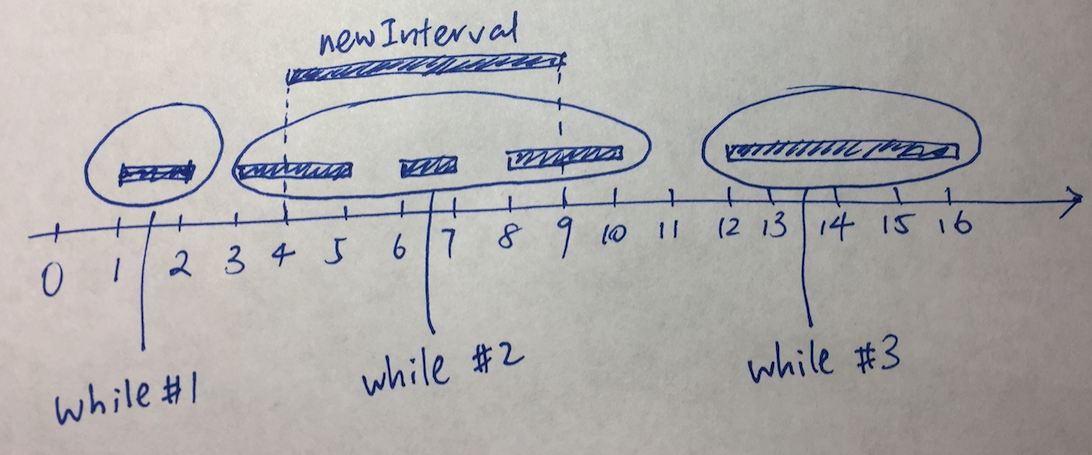 newInterval
0 1 2 3 4 5 6 7 8 9 10 11 12 13 14 15 16
while #1
while #2
while #3